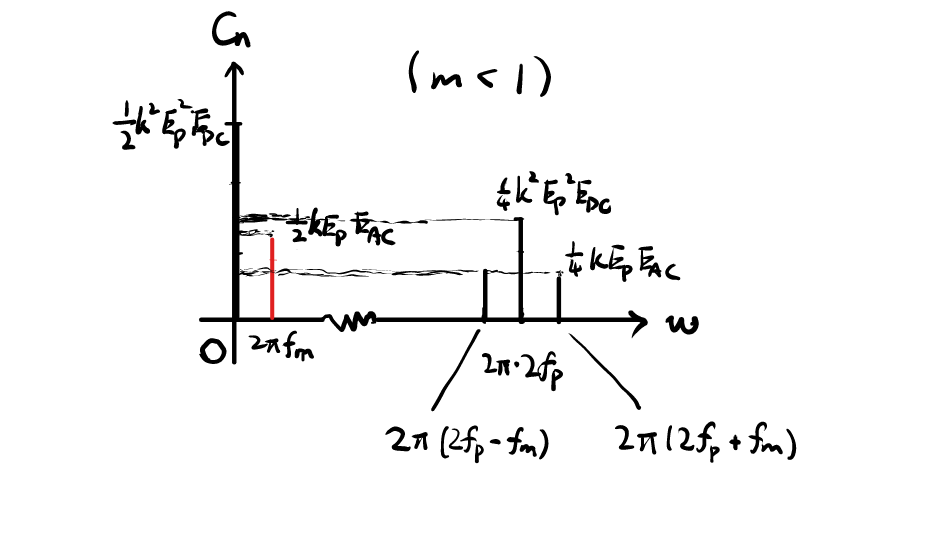 Cn
(m < 1)
1/2 k² Ep² EDC
1/4 k² Ep² EDC
1/2 kEp EAC
1/4 kEp EAC
O
2πfm
2π·2fp
ω
2π(2fp - fm)
2π(2fp + fm)